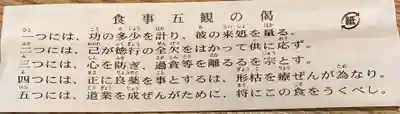 食事五観の偈
紙
一つには、功の多少を計り、彼の来処を量る。
二つには、己が徳行の全欠をはかって供に応ず。
三つには、心を防ぎ、過貪等を離るるを宗とす。
四つには、正に良薬を事とするは、形枯を療ぜんが為なり。
五つには、道業を成ぜんがために、将にこの食をうくべし。